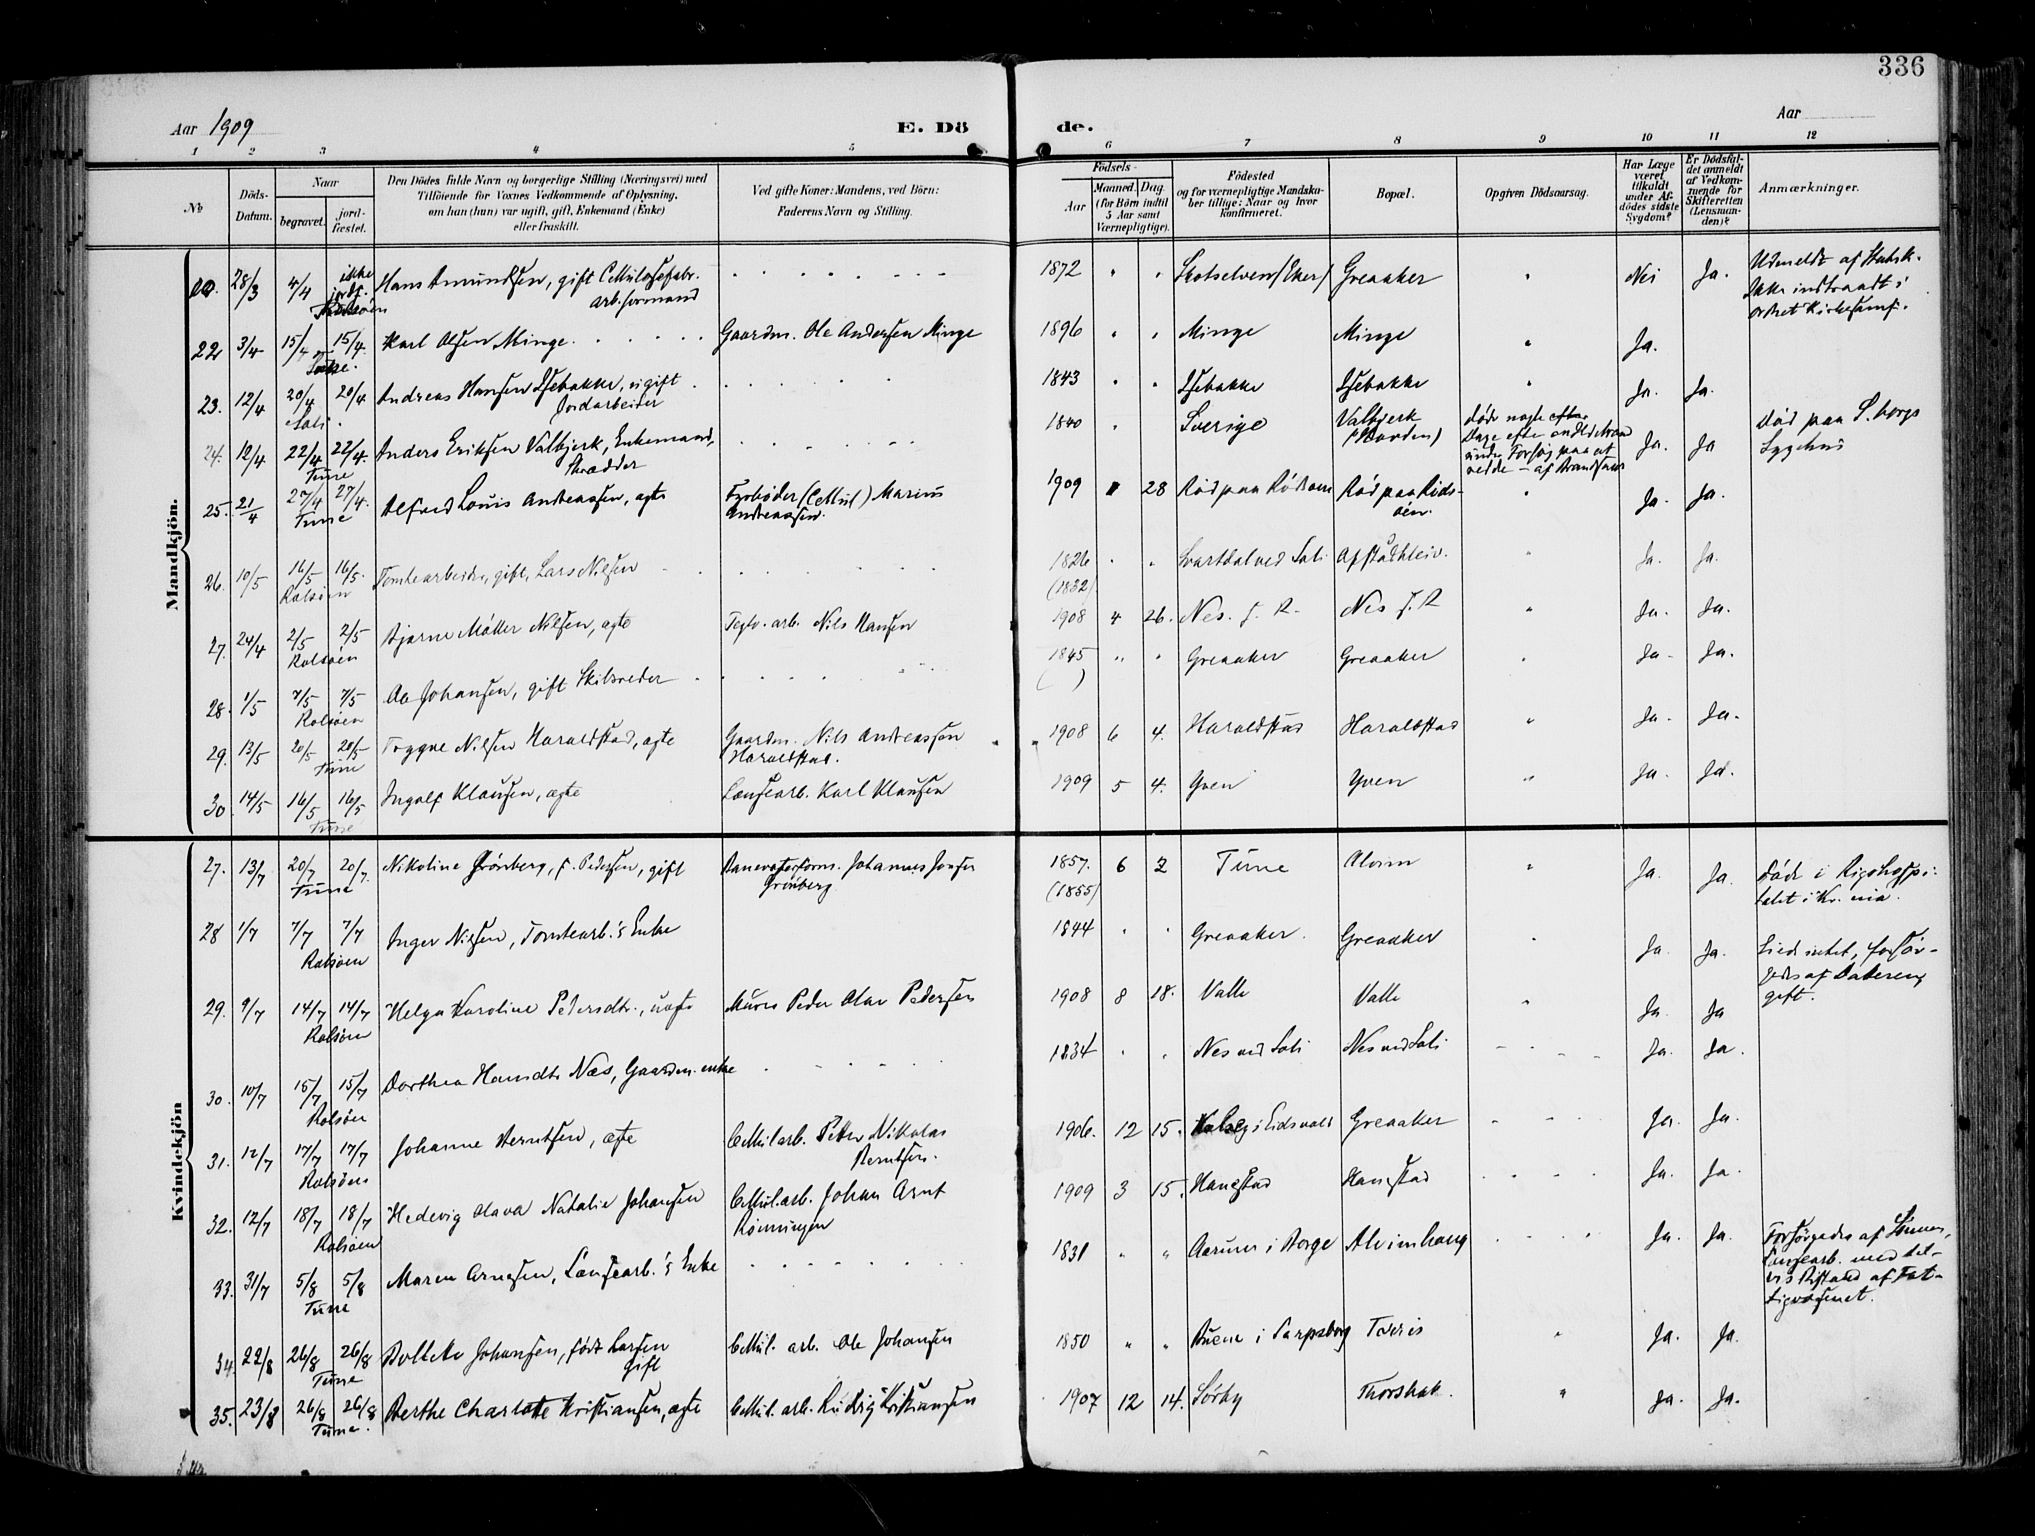 336
Aar 1909
E. Dö
de.
Aar
1 2 3 4 5 6 7 8 9 10 11 12
№
Döds-Datum.
Naar
begravet.
jord-fæstet.
Den Dödes fulde Navn og borgerlige Stilling (Næringsvei) med
Tilföiende for Voxnes Vedkommende af Oplysning,
om han (hun) var ugift, gift, Enkemand (Enke)
eller fraskilt.
Ved gifte Koner: Mandens, ved Börn:
Faderens Navn og Stilling.
Födsels-
Aar
Maaned. Dag.
(for Börn indtil
5 Aar samt
Værnepligtige).
Födested
og for værnepligtige Mandska-
ber tillige: Naar og hvor
konfirmeret.
Bopæl.
Opgiven Dödsaarsag.
Har Læge
været
tilkaldt
under Af-
dödes sidste
Sygdom?
Er Dödsfal-
det anmeldt
af Vedkom-
mende for
Skifteretten
(Lensman-
den)?
Anmærkninger.
Mandkjön.
28/3 4/4 ikke jordf. Hans Amundsen, gift Cellulosefabr. arb. formand 1872 " " Skotselven (Eker) Greaaker " Nei Ja. Udmeldt af Statsk.
Ikke indtraadt i
andet Kirkesamf.
22 3/4 15/4 15/4 Karl Olsen Minge. Gaardm. Ole Andersen Minge 1896 " " Minge Minge " Ja.
Tune.
23. 12/4 20/4 20/4 Andreas Hansen Isebakke, ugift Jordarbeider 1843 " " Isebakke Isebakke " Ja. Ja.
Soli
24. 12/4 22/4 22/4 Anders Eriksen Valbjerk, Enkemand, Skrædder 1840 " Sverige Valbjerk (Varden) døde nogle
Dage efter
under Forsøg paa at
redde - af Brandsaar Ja. Ja Død paa S.borgs
Sygehus
Tune
25. 21/4 27/4 27/4. Alfred Louis Andreassen, ægte Fyrbøder (Cellul) Marius
Andreassen. 1909 " 28 Rød paa Rødsøen Rød paa Røds-
øen. " Ja. Ja.
Tune
26. 10/5 16/5 16/5. Tomtearbeider, gift, Lars Nilsen 1826
(1832) " " Svartdal ved Soli Ja. Ja.
Rolsøen
27. 24/4 2/5 2/5 Bjarne Møller Nilsen, ægte Teglv. arb. Nils Hansen 1908 4 26. Nes. f. R. Nes f. R " Ja. Ja.
Rolsøen
28. 1/5 7/5 7/5 Ole Johansen, gift Skibsreder 1845
( ) " " Greaaker Greaaker " Ja. Ja.
Rolsøen
29. 13/5 20/5 20/5 Trygve Nilsen Haraldstad, ægte Gaardm. Nils Andreassen
Haraldstad. 1908 6 4. Haraldstad Haraldstad " Ja. Ja.
Tune
30 14/5 16/5 16/5 Ingolf Klausen, ægte Lænsearb. Karl Klausen 1909 5 4. Yven Yven " Ja. Ja.
Tune
Kvindekjön
27. 13/7 20/7 20/7. Nikoline Grønberg, f. Pedersen, gift Banevogterform. Johannes Jensen
Grønberg 1857.
(1855) 6 2 Tune Alvim " Ja. Ja. Døde i Rigshospi-
talet i Kr.nia.
Tune
28 1/7 7/7 7/7 Inger Nilsen, Tomtearb.'s Enke 1844 " " Greaaker. Greaaker " Ja. Ja. Eied intet, forsør-
gedes af Datteren,
gift.
Rolsøen
29. 9/7 14/7 14/7 Helga Karoline Pedersdtr., uægte Murer Peder Olav Pedersen 1908 8 18. Valle Valle " Ja. Ja
Rolsøen
30. 10/7 15/7 15/7 Dorthea Hansdtr. Næs, Gaardm. enke 1834 " " Nes ved Soli Nes ved Soli Ja. Ja.
Rolsøen
31. 12/7 17/7 17/7 Johanne Berntsen, ægte Cellul arb. Peter Nikolai
Berntsen. 1906. 12 15. i Eidsvold Greaaker Ja. Ja.
Rolsøen
32. 12/7 18/7 18/7 Hedevig Olava Natalie Johansen Cellul.arb. Johan Arnt
Rønningen 1909 3 15. Hanestad Hanestad Ja. Ja.
Rolsøen
33. 31/7 5/8 5/8 Maren Arnesen, Lænsearb.'s Enke 1831 " " i Borge Alvimhaug Ja. Ja. Forsørgedes af Sønnen,
Lænsearb. med del-
vis Bistand af Fat-
tigvæsenet.
Tune
34. 22/8 26/8 26/8 Bollette Johansen, født Larsen Gift Cellul. arb. Ole Johansen 1850 " " i Sarpsborg Torris " Ja. Ja.
Tune
35. 23/8 26/8 26/8 Berthe Charlotte Kristiansen, ægte Cellul. arb. Ludvig Kristiansen 1907 12 14. Sørby Thorsbæk. " Ja. Ja.
Tune.